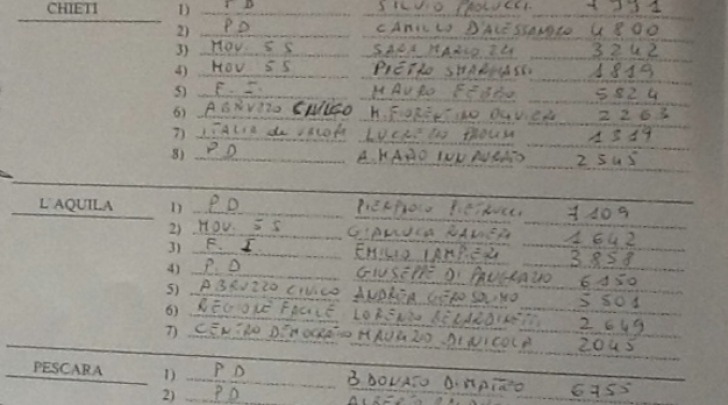 CHIETI 1) PD SILVIO PAOLUCCI 7991
2) PD CAMILLO D'ALESSANDRO 4800
3) MOV. 5S SARA MARCOZZI 3242
4) MOV 5S PIETRO SMARGIASSI 1819
5) F. I. MAURO FEBBO 5824
6) ABRUZZO CIVICO M. FIORENTINO OLIVIERI 2263
7) ITALIA dei VALORI LUCREZIO PAOLINI 1319
8) PD A. MARIO INNAURATO 2545
L'AQUILA 1) PD PIERPAOLO PIETRUCCI 7109
2) MOV. 5S GIANLUCA RANIERI 1642
3) F. I EMILIO IAMPIERI 3858
4) P. D GIUSEPPE DI PANGRAZIO 6150
5) ABRUZZO CIVICO ANDREA GEROSOLIMO 5501
6) REGIONE FACILE LORENZO BERARDINETTI 2649
7) CENTRO DEMOCRATICO MAURIZIO DI NICOLA 2045
PESCARA 1) PD DONATO DI MATTEO 6755
2) PD